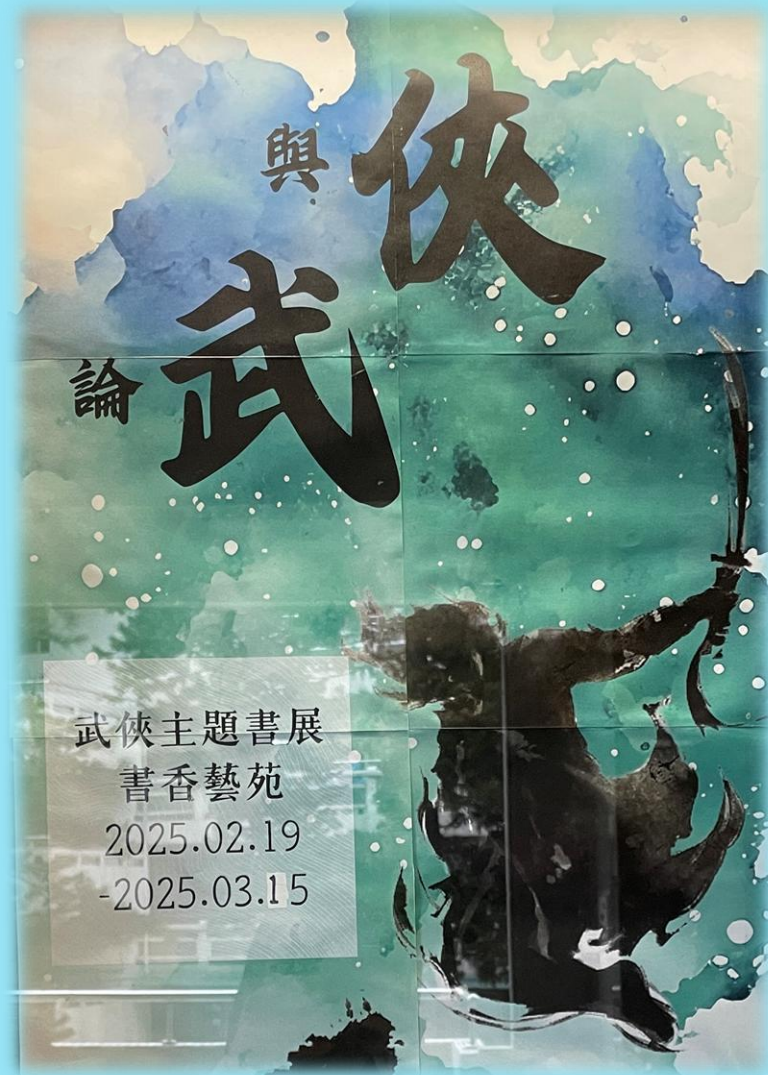 與俠
論武
武俠主題書展
書香藝苑
2025.02.19
-2025.03.15